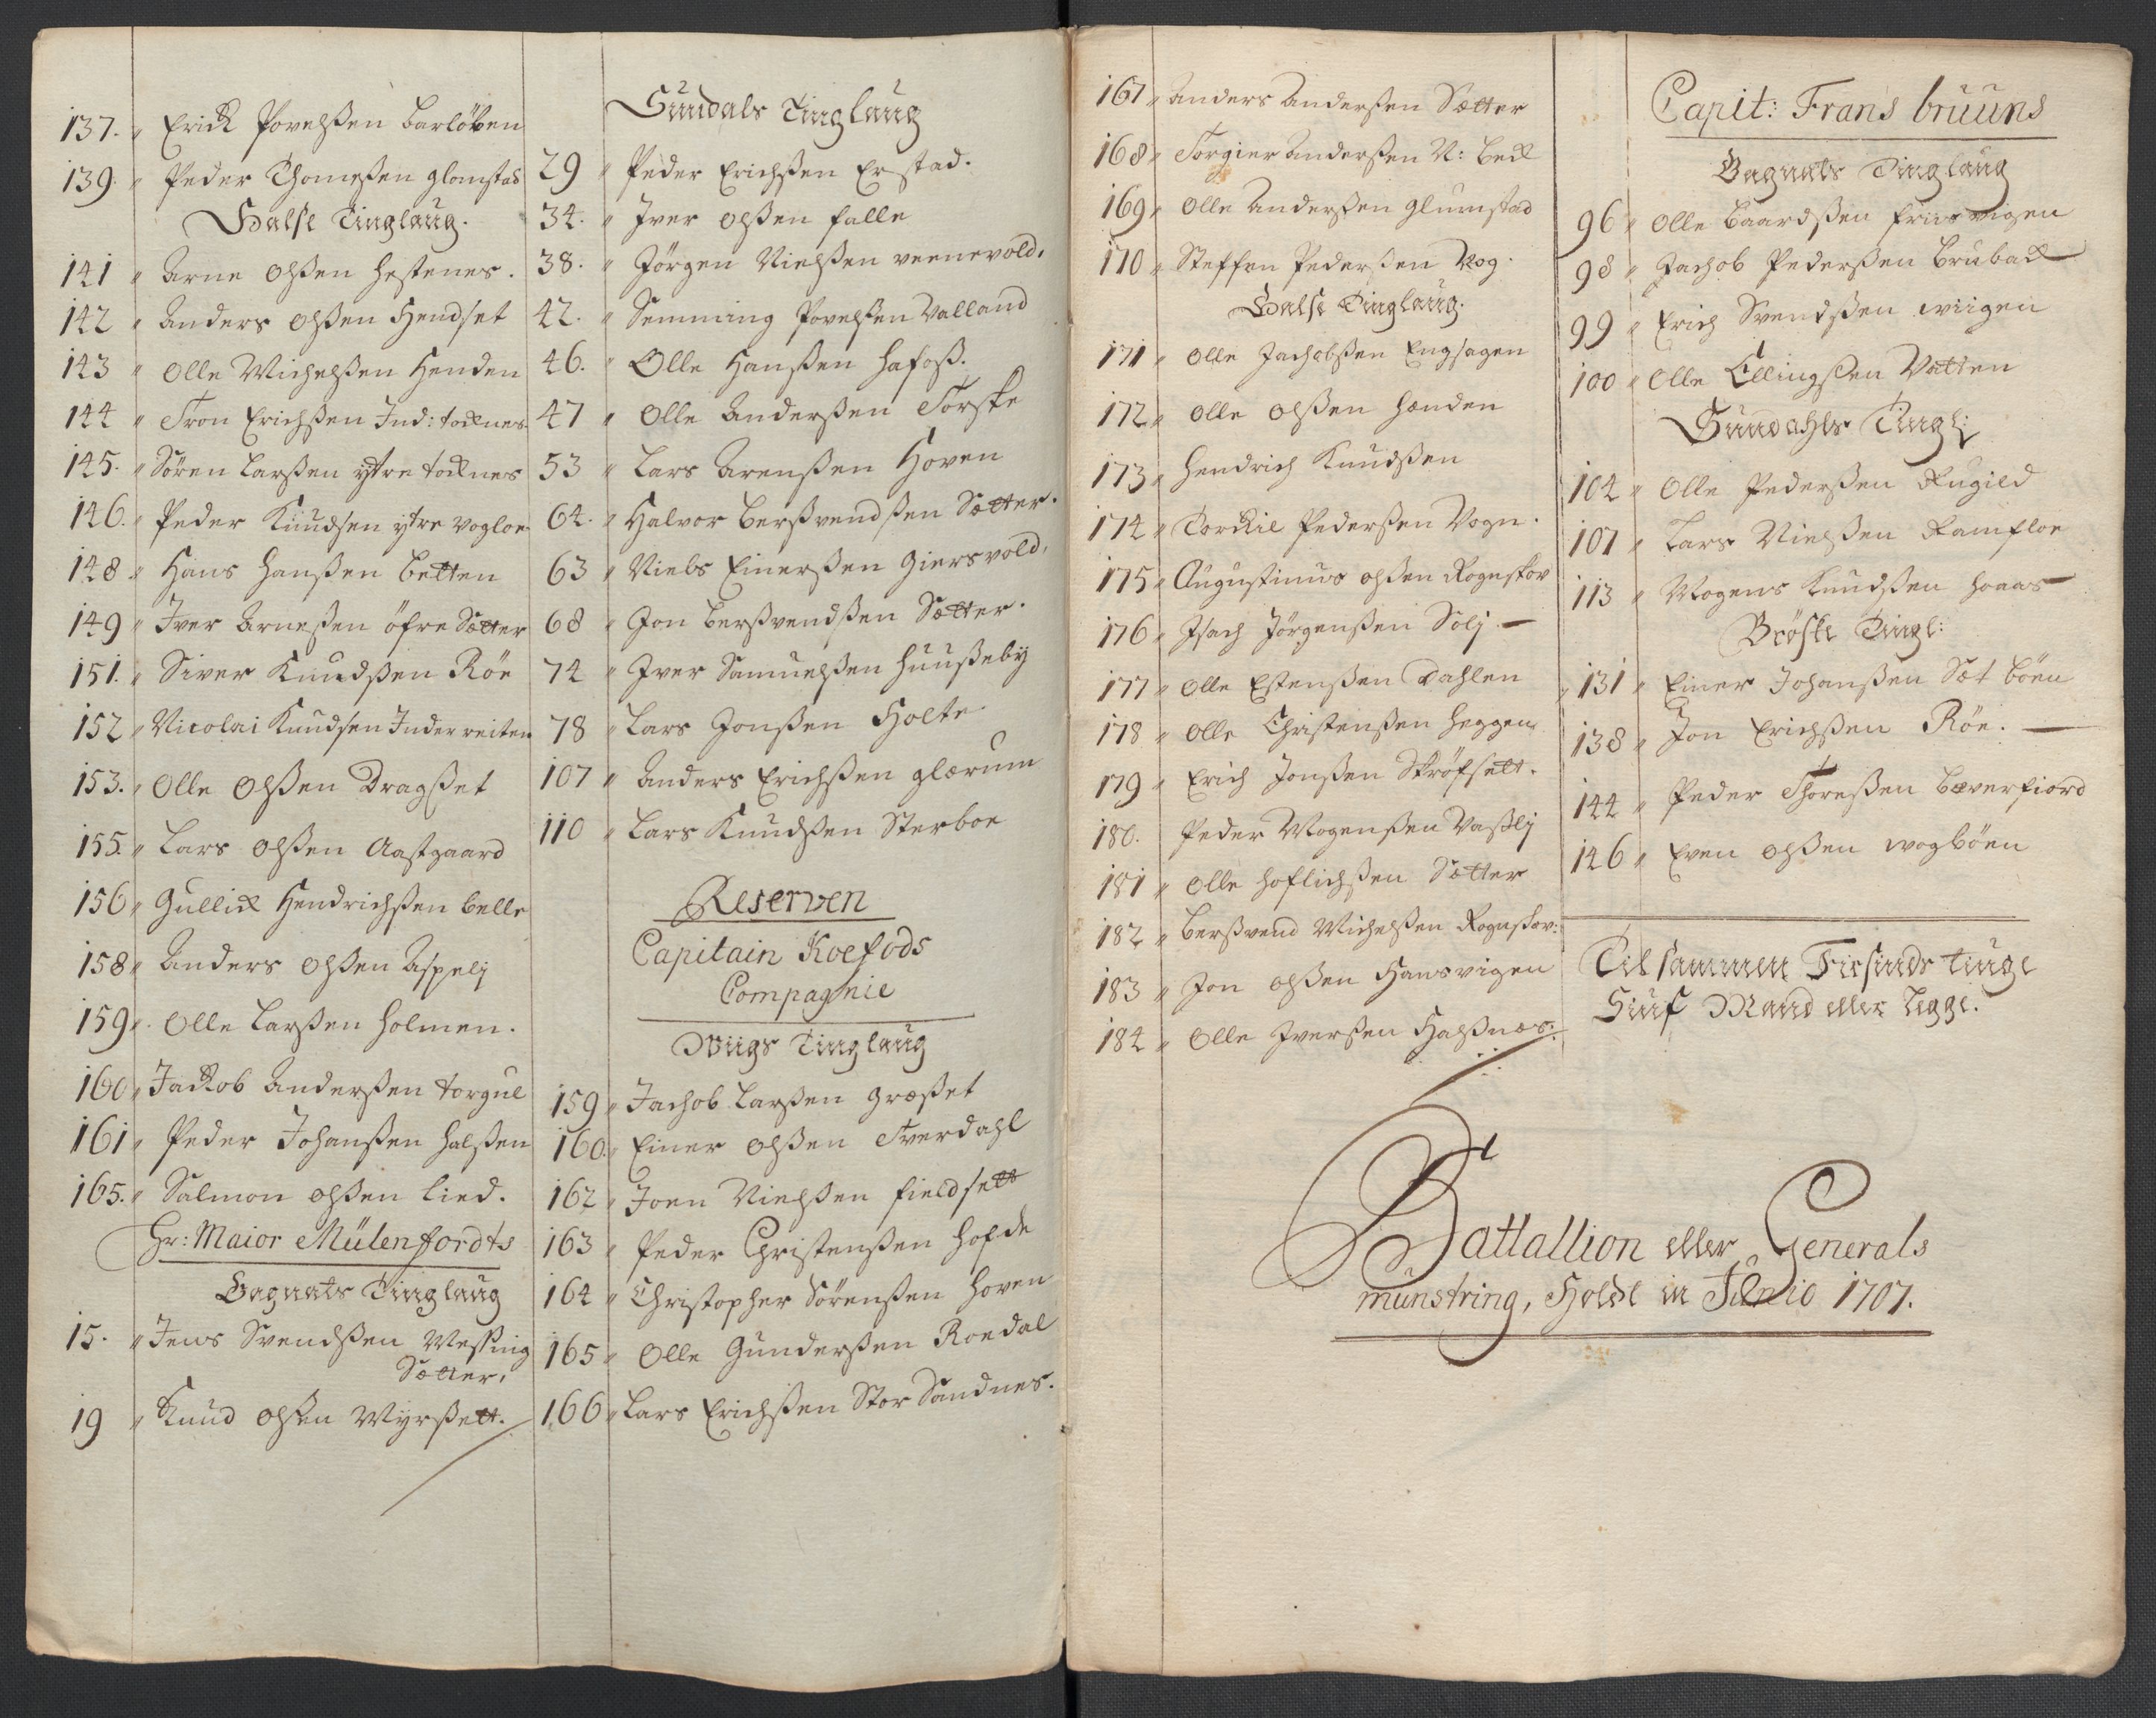 137. " Erick Povelßen barlöben
139. " Peder Thomeßen glomstad
Halse Tinglaug.
141 " Arne olßen hestenes.
142 " Anders olßen Hendset
143 " Olle Michelßen Henden
144 " Tron Erichßen Ind: tocknes
145. " Sören Larßen ytre tocknes
146. " Peder Knudsen ytre vogloe
148 " Hans hanßen betten
149 " Iver Arneßen öfre Sætter
151. " Siver Knudßen Röe
152 " Nicolai Knudsen Inder reiten
153. " Olle Olßen Dragßet
155. " Lars olßen Aastgaard
156 " Gullick Hendrichßen belle
158 " Anders olßen Aspelj
159 " Olle Larßen holmen.
160 " Jackob Anderßen torgul
161 " Peder Johanßen halßen
165. " Salmon olßen lied.
Hr: Maior Mülenfordts
Bagnats Tinglaug
15. " Jens Svendßen Meßing
Sætter,
19 " Knud olßen Myrßett.
Sundals Tinglaug
29 " Peder Erichßen Erstad.
34. " Iver olßen falle
38. " Jörgen Nielßen veenevold,
42. " Semming Povelßen Valland
46. " Olle Hanßen hafoß.
47 " Olle Anderßen Torske
53 " Lars Arenßen Hoven
64. " Halvor berßvendßen Sætter.
63 " Niels Einerßen Giersvold,
68 " Jon berßvendßen Sætter.
74 " Iver Samuelßen huußeby
78 " Lars Jonßen Holte
107 " Anders Erichßen glærum
110 " Lars Knudßen Sterboe
Reserven
Capitain Koefods
Compagnie
Wiigs Tinglaug
159 " Jachob Larßen græßet
160. " Einer olßen Tverdahl
162 " Joen Nielßen fieldsett
163 " Peder Christenßen hofde
164 " Christopher Sörenßen hoven
165 " Olle Gunderßen Roedal
166 " Lars Erichßen Stor Sandnes.
167 " Anders Anderßen Sætter
168 " Torgier Anderßen N: beck
169 " Olle Anderßen glumstad
170 " Steffen Pederßen Vog.
Halse Tinglaug.
171 " Olle Jachobßen Engsagen
172 " Olle olßen hænden
173 " Hendrich Knudßen
174 " Torckil Pederßen Vogn.
175 " Augustinus olßen Rognskov
176 " Isach Jörgenßen Solj —
177 " Olle Estenßen Dahlen
178 " Olle Christenßen heggen
179 " Erich Jonßen Skröfsett.
180. Peder Mogenßen Vaßlj
181 " Olle hoflichßen Sætter
182 " Berßvend Michelßen Rognskov:
183 " Jon olßen Hansvigen
184 " Olle Iverßen Halßnæs.
Capit: Frans bruuns
Bagnats Tinglaug
96 " Olle baardßen friisvigen
98 " Jachob Pederßen Bruback
99 " Erich Svendßen wiigen
100 " Olle Ellingßen Vatten
Sundahls Tingl:
104 " Olle Pederßen Rugild
107 " Lars Nielßen Ramfloe
113 " Mogens Knudßen hoaas
Bröske Tingl:
131 " Einer Johanßen Sæt böen
138 " Jon Erichßen Röe. —
144 " Peder Thoreßen bæverfiord
146 " Even olßen wogböen
Til sammen Firsinds tiuge
Siuf Mand eller legge.
Battallion eller Generals
münstring, Holdt in Junio 1707.